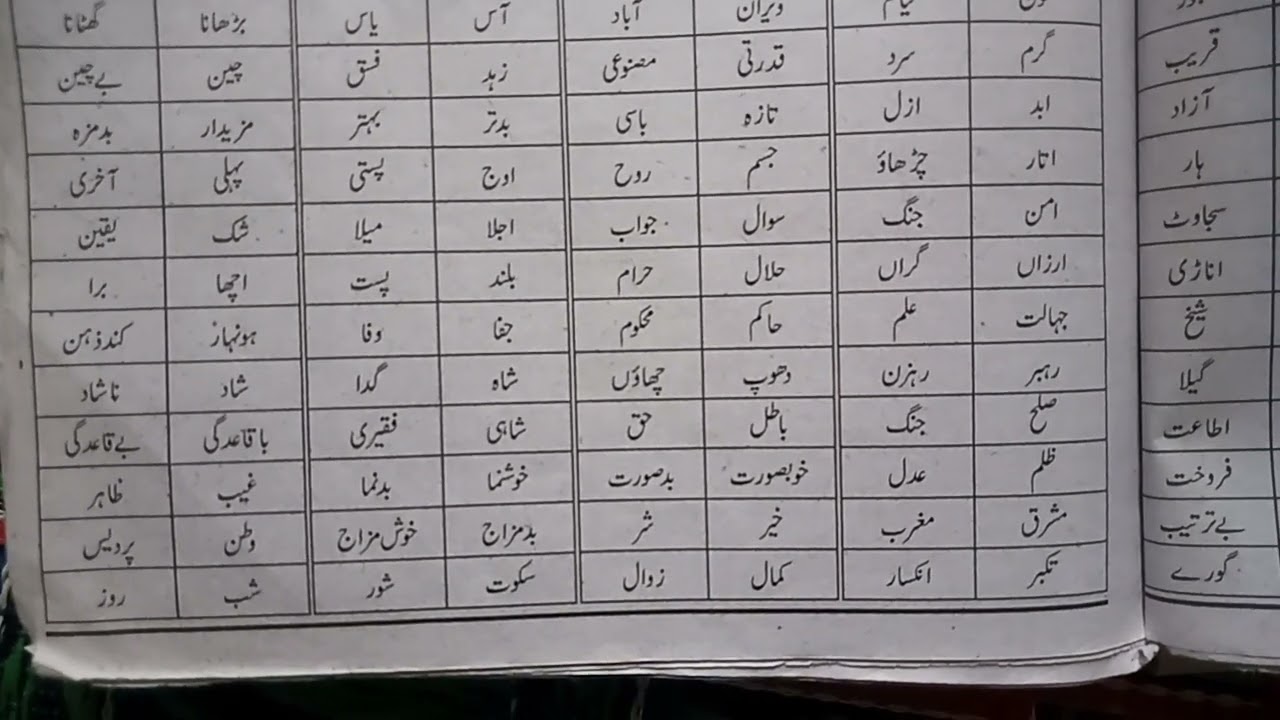 ویران آباد آس یاس بڑھانا گھٹانا
گرم سرد قدرتی مصنوعی زہد فسق چین بے چین
ابد ازل تازہ باسی بدتر بہتر مزیدار بدمزہ
اتار چڑھاؤ جسم روح اوج پستی پہلی آخری
امن جنگ سوال جواب اجلا میلا شک یقین
ارزاں گراں حلال حرام بلند پست اچھا برا
جہالت علم حاکم محکوم جفا وفا ہونہار کند ذہن
رہبر رہزن دھوپ چھاؤں شاہ گدا شاد ناشاد
صلح جنگ باطل حق شاہی فقیری باقاعدگی بے قاعدگی
ظلم عدل خوبصورت بدصورت خوشنما بدنما غیب ظاہر
مشرق مغرب خیر شر بدمزاج خوش مزاج وطن پردیس
تکبر انکسار کمال زوال سکوت شور شب روز
قریب
آزاد
ہار
سجاوٹ
اناڑی
شیخ
گیلا
اطاعت
فروخت
بے ترتیب
گورے